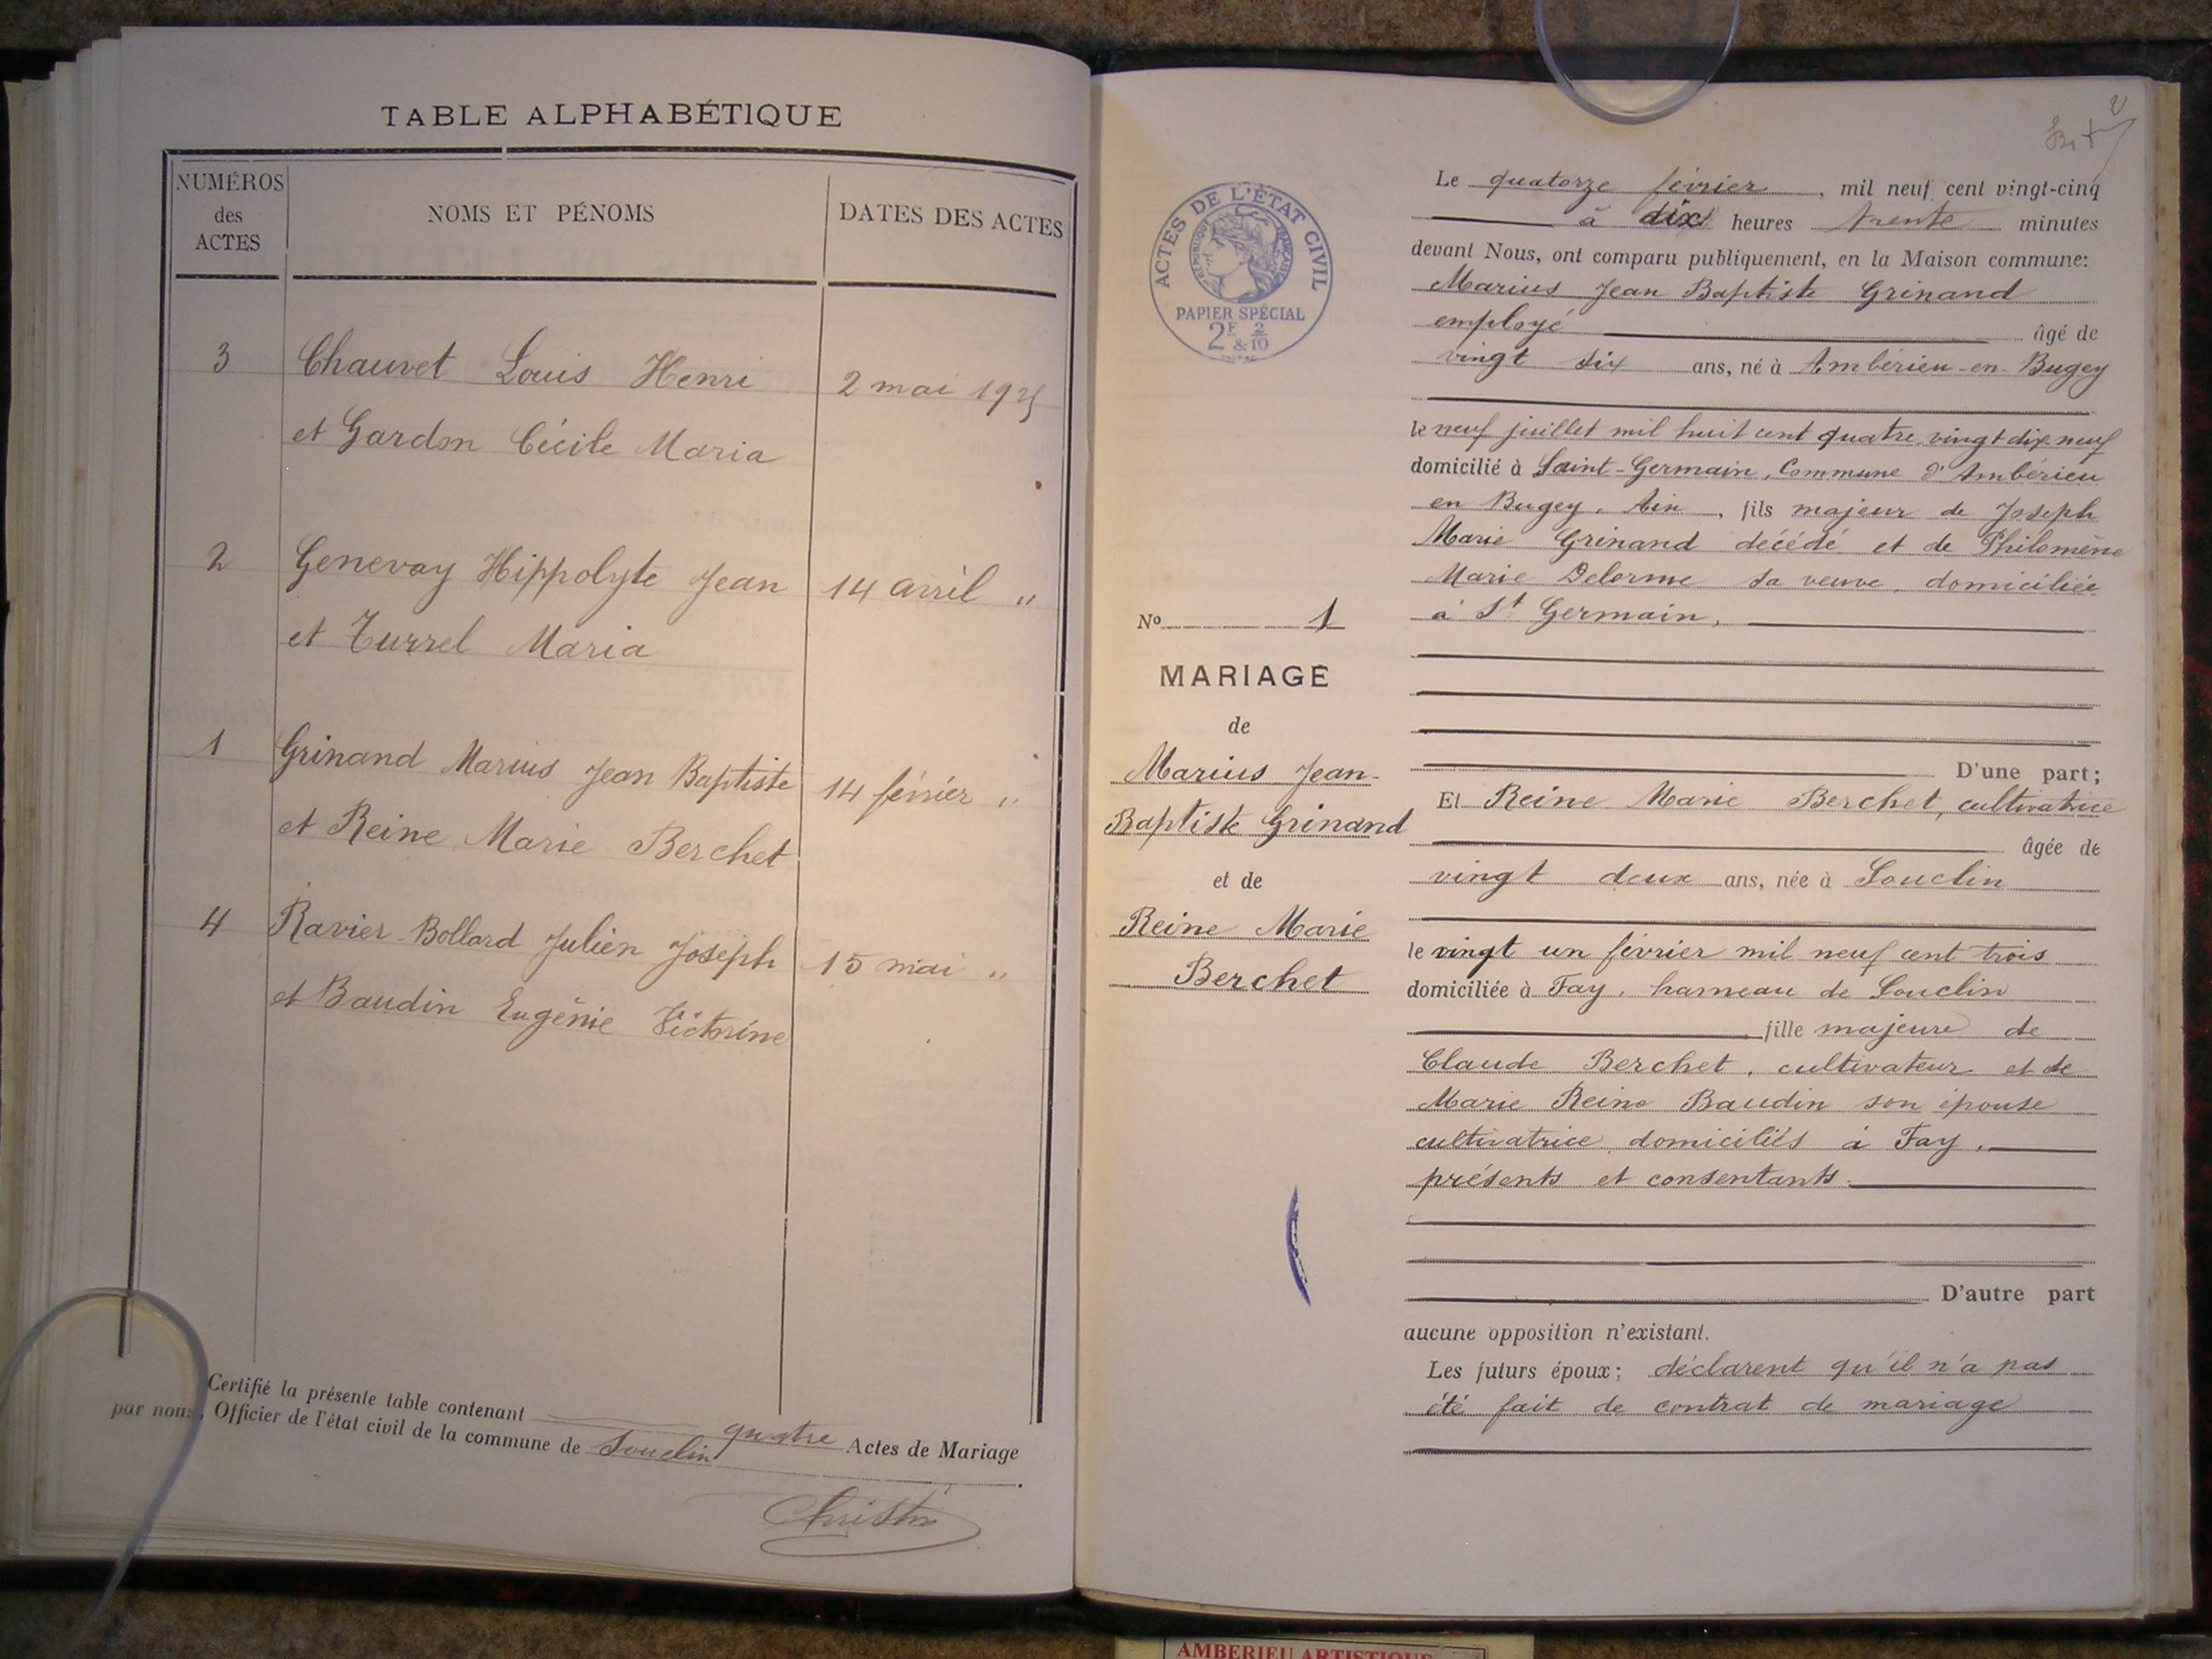 TABLE ALPHABÉTIQUE
NUMÉROS
des
ACTES
NOMS ET PÉNOMS
DATES DES ACTES
3 Chauvet Louis Henri 2 mai 1925
et Gardon Cécile Maria
2 Genevay Hippolyte Jean 14 avril "
et Turrel Maria
1 Grinand Marius Jean Baptiste 14 février "
et Reine Marie Berchet
4 Ravier-Bollard Julien Joseph 15 mai "
et Baudin Eugénie Victorine
Certifié la présente table contenant quatre Actes de Mariage
par nous, Officier de l'état civil de la commune de Souclin
ACTES DE L'ÉTAT CIVIL
REPUBLIQUE FRANÇAISE
PAPIER SPÉCIAL
2F & 2/10
No 1
MARIAGE
de
Marius Jean-
Baptiste Grinand
et de
Reine Marie
Berchet
2
Le quatorze février, mil neuf cent vingt-cinq
à dix heures trente minutes
devant Nous, ont comparu publiquement, en la Maison commune:
Marius Jean Baptiste Grinand
employé âgé de
vingt six ans, né à Ambérieu-en-Bugey
le neuf juillet mil huit cent quatre-vingt dix-neuf
domicilié à Saint-Germain, Commune d'Ambérieu
en Bugey, Ain, fils majeur de Joseph
Marie Grinand décédé et de Philomène
Marie Delorme sa veuve, domiciliée
à St Germain,
D'une part;
Et Reine Marie Berchet, cultivatrice
âgée de
vingt deux ans, née à Souclin
le vingt un février mil neuf cent trois
domiciliée à Fay, hameau de Souclin
fille majeure de
Claude Berchet, cultivateur et de
Marie Reine Baudin son épouse
cultivatrice, domiciliés à Fay,
présents et consentants.
D'autre part
aucune opposition n'existant.
Les futurs époux; déclarent qu'il n'a pas
été fait de contrat de mariage
AMBERIEU ARTISTIQUE